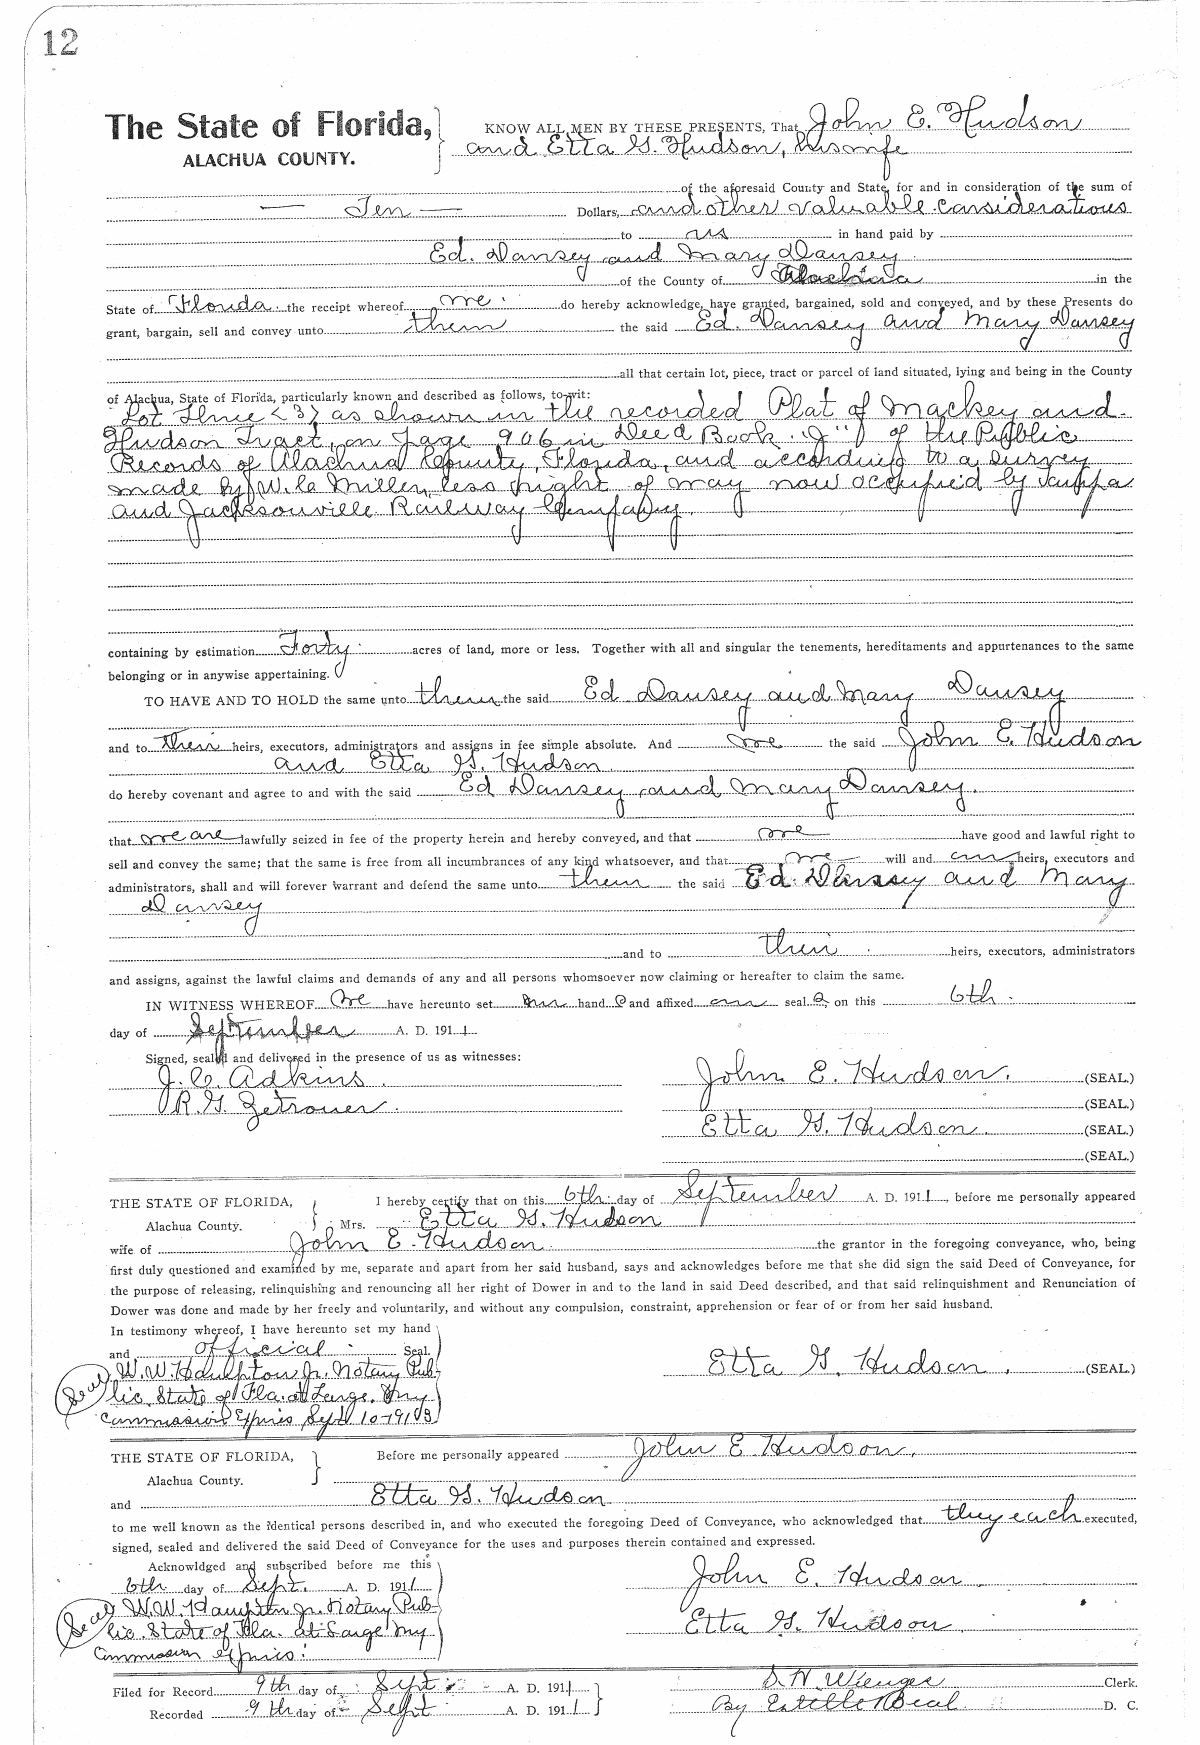 12
The State of Florida, KNOW ALL MEN BY THESE PRESENTS, That John E. Hudson
ALACHUA COUNTY. and Etta G. Hudson, his wife
of the aforesaid County and State, for and in consideration of the sum of
— Ten — Dollars, and other valuable considerations
to us in hand paid by
Ed. Dansey and Mary Dansey
of the County of Alachua in the
State of Florida the receipt whereof we do hereby acknowledge, have granted, bargained, sold and conveyed, and by these Presents do
grant, bargain, sell and convey unto them the said Ed. Dansey and Mary Dansey
all that certain lot, piece, tract or parcel of land situated, lying and being in the County
of Alachua, State of Florida, particularly known and described as follows, to-wit:
Lot Three <3> as shown in the recorded Plat of Mackey and
Hudson Tract, on page 906 in Deed Book "J" of the Public
Records of Alachua County, Florida, and according to a survey
made by W. C. Miller, less right of way now occupied by Tampa
and Jacksonville Railway Company.
containing by estimation Forty acres of land, more or less. Together with all and singular the tenements, hereditaments and appurtenances to the same
belonging or in anywise appertaining.
TO HAVE AND TO HOLD the same unto them the said Ed Dansey and Mary Dansey
and to their heirs, executors, administrators and assigns in fee simple absolute. And we the said John E. Hudson
and Etta G. Hudson
do hereby covenant and agree to and with the said Ed Dansey and Mary Dansey.
that we are lawfully seized in fee of the property herein and hereby conveyed, and that we have good and lawful right to
sell and convey the same; that the same is free from all incumbrances of any kind whatsoever, and that we will and our heirs, executors and
administrators, shall and will forever warrant and defend the same unto them the said Ed. Dansey and Mary
Dansey
and to their heirs, executors, administrators
and assigns, against the lawful claims and demands of any and all persons whomsoever now claiming or hereafter to claim the same.
IN WITNESS WHEREOF We have hereunto set our hand s and affixed our seal s on this 6th
day of September A. D. 1911
Signed, sealed and delivered in the presence of us as witnesses:
J. C. Adkins. John E. Hudson. (SEAL.)
R. G. Zetrouer. (SEAL.)
Etta G. Hudson. (SEAL.)
(SEAL.)
THE STATE OF FLORIDA, I hereby certify that on this 6th day of September A. D. 1911, before me personally appeared
Alachua County. Mrs. Etta G. Hudson
wife of John E. Hudson the grantor in the foregoing conveyance, who, being
first duly questioned and examined by me, separate and apart from her said husband, says and acknowledges before me that she did sign the said Deed of Conveyance, for
the purpose of releasing, relinquishing and renouncing all her right of Dower in and to the land in said Deed described, and that said relinquishment and Renunciation of
Dower was done and made by her freely and voluntarily, and without any compulsion, constraint, apprehension or fear of or from her said husband.
In testimony whereof, I have hereunto set my hand
and official Seal.
Seal W. W. Hampton Jr. Notary Pub- Etta G. Hudson. (SEAL)
lic. State of Fla. at Large. My
Commission Expires Sept 10-1913
THE STATE OF FLORIDA, Before me personally appeared John E Hudson,
Alachua County.
and Etta G. Hudson
to me well known as the identical persons described in, and who executed the foregoing Deed of Conveyance, who acknowledged that they each executed,
signed, sealed and delivered the said Deed of Conveyance for the uses and purposes therein contained and expressed.
Acknowldged and subscribed before me this
6th day of Sept. A. D. 1911 John E. Hudson
Seal W. W. Hampton Jr. Notary Pub-
lic. State of Fla. at Large My Etta G. Hudson
Commission expires:
Filed for Record 9th day of Sept A. D. 1911 S. H. Wienges Clerk.
Recorded 9th day of Sept A. D. 1911 By Estelle Beal D. C.